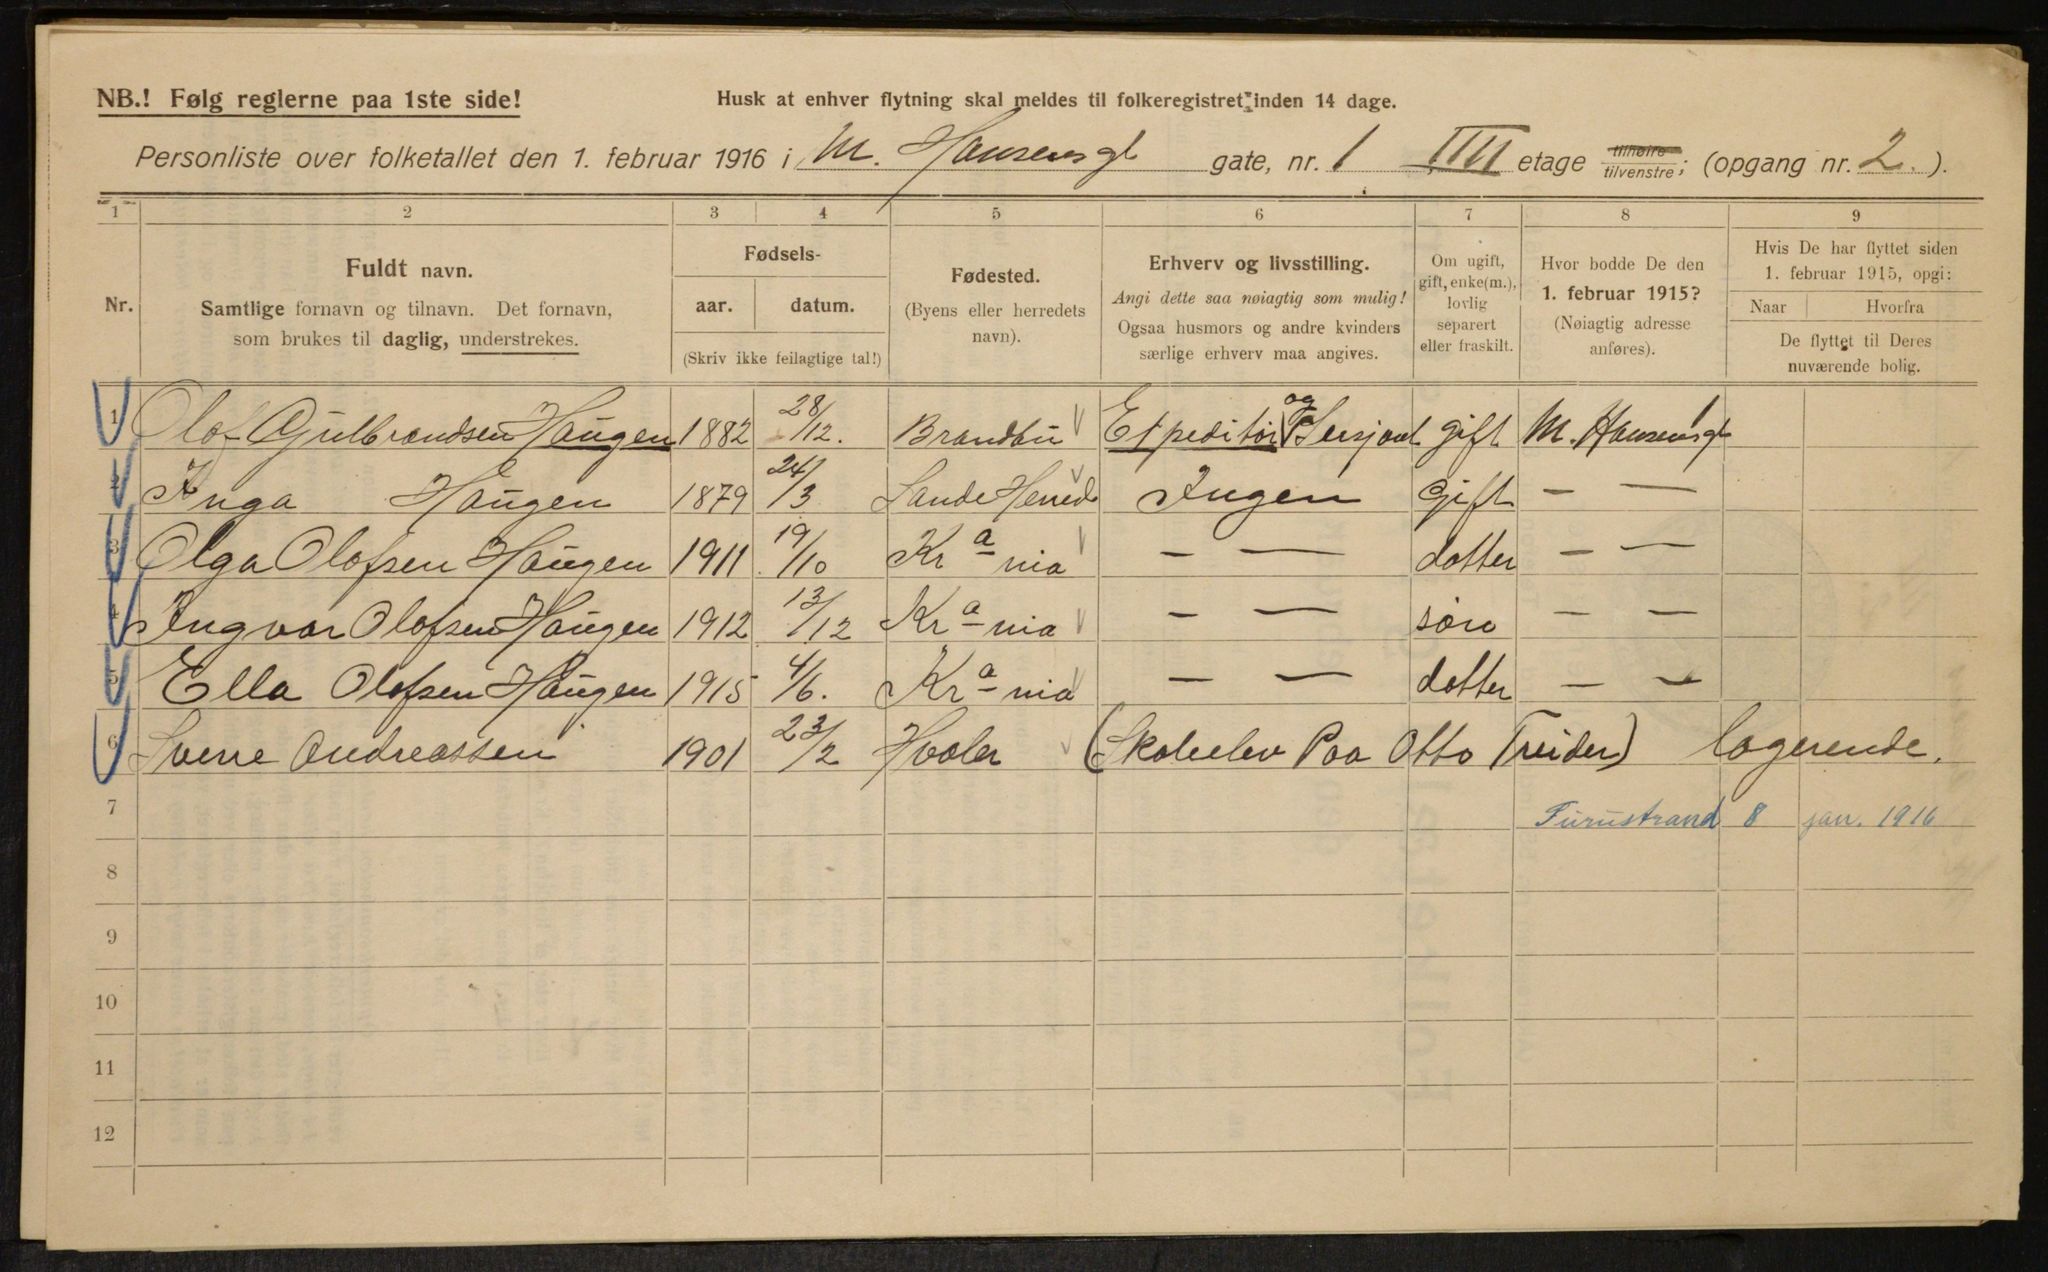 NB.! Følg reglerne paa 1ste side!
Husk at enhver flytning skal meldes til folkeregistret inden 14 dage.
Personliste over folketallet den 1. februar 1916 i M. Hansensgt gate, nr. 1 IIII etage tilhøire tilvenstre; (opgang nr. 2.).
1 2 3 4 5 6 7 8 9
Nr.
Fuldt navn.
Samtlige fornavn og tilnavn. Det fornavn,
som brukes til daglig, understrekes.
Fødsels-
aar. datum.
(Skriv ikke feilagtige tal!)
Fødested.
(Byens eller herredets
navn).
Erhverv og livsstilling.
Angi dette saa nøiagtig som mulig!
Ogsaa husmors og andre kvinders
særlige erhverv maa angives.
Om ugift,
gift, enke(m.),
lovlig
separert
eller fraskilt.
Hvor bodde De den
1. februar 1915?
(Nøiagtig adresse
anføres).
Hvis De har flyttet siden
1. februar 1915, opgi:
Naar Hvorfra
De flyttet til Deres
nuværende bolig.
1 Olof Gulbrandsen Haugen 1882 28/12. Brandbu Expeditør og Sersjant gift M. Hansensgt 1
2 Inga Haugen 1879 24/3 Sande Herred Ingen Gift — —
3 Olga Olofsen Haugen 1911 19/10 Kr a nia — — dotter — —
4 Ingvar Olofsen Haugen 1912 13/12 Kr a nia — — søn — —
5 Ella Olofsen Haugen 1915 4/6. Kr a nia — — dotter — —
6 Sverre Andreassen 1901 23/2 Hvaler (Skoleelev Paa Otto Treider) logerende.
7 Furustrand 8 jan. 1916
8
9
10
11
12